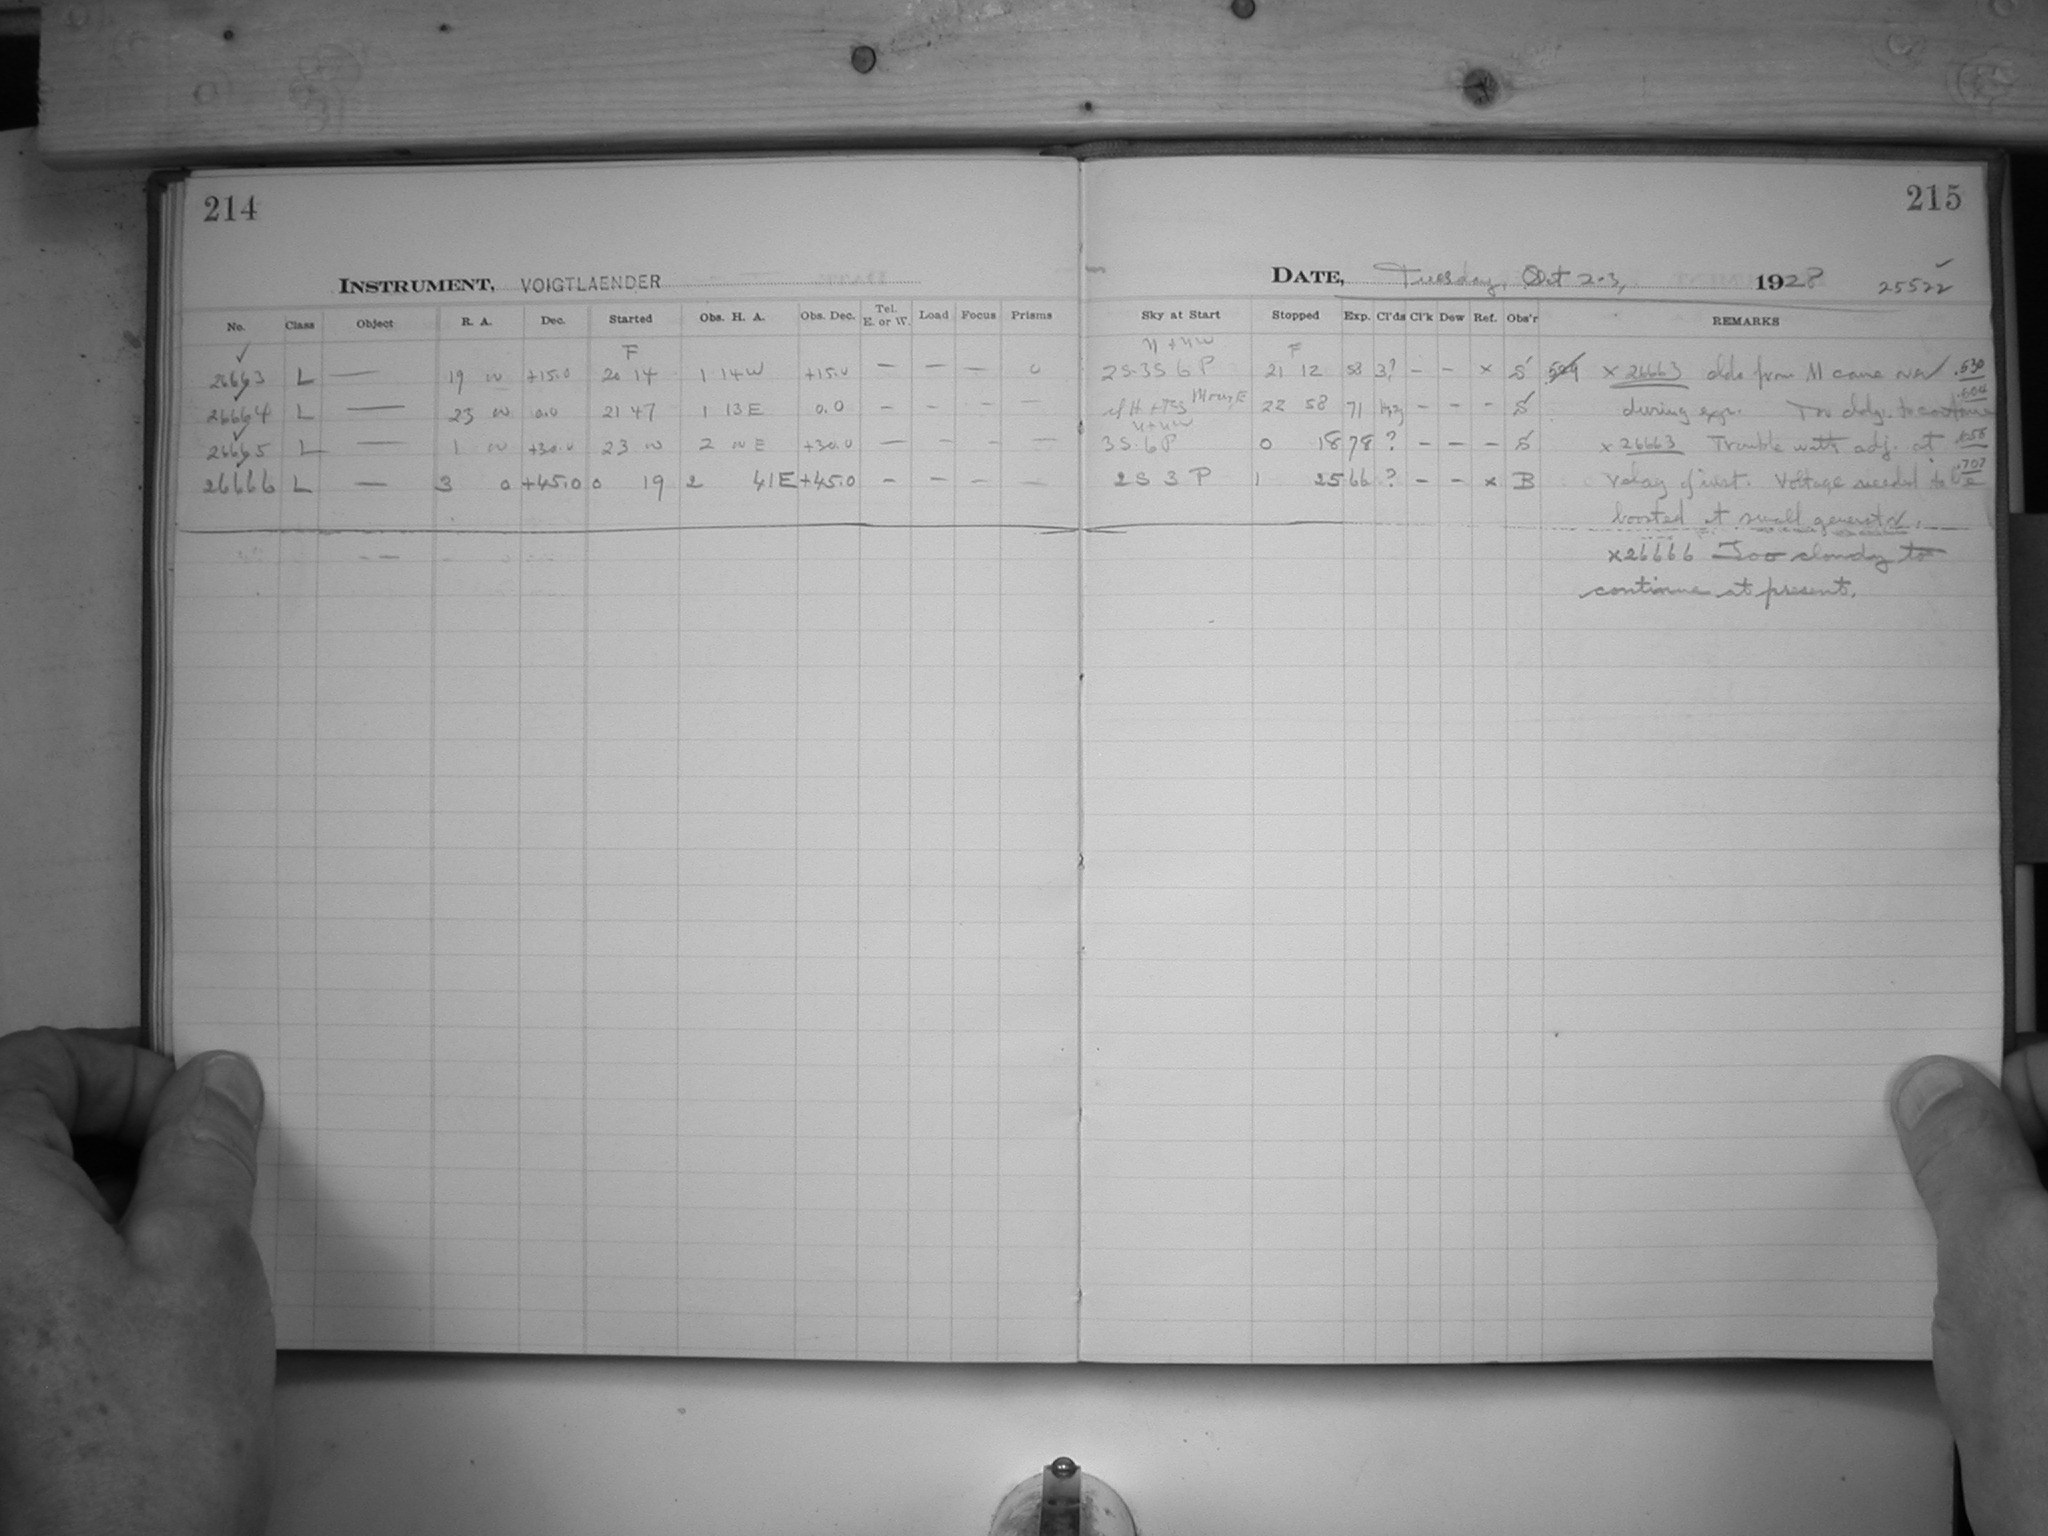 214
215
INSTRUMENT, VOIGTLAENDER
DATE, Tuesday, Oct 2-3, 1928
25522
No. Class Object R. A. Dec. Started Obs. H. A. Obs. Dec. Tel. E. or W. Load Focus Prisms Sky at Start Stopped Exp. Cl'ds Cl'k Dew Ref. Obs'r REMARKS
F F
26663 L — 19 +15.0 20 14 1 14 W +15.0 — — — 0 2S.3S 6 P 21 12 58 3? – – x S x 26663 clds from M came over .530
26664 L — 23 0.0 21 47 1 13 E 0.0 – – – – 22 58 71 – – – S during exp. Too cldy. to continue
26665 L — 1 +30.0 23 2 E +30.0 — – – – 3S.6P 0 18 78 ? – – – S x 26663 Trouble with adj. at
26666 L — 3 0 +45.0 0 19 2 41 E +45.0 – – – – 2S 3 P 1 25 66 ? – – x B relay of inst. Voltage needed to be .707
boosted at small generator.
x26666 Too cloudy to
continue at present.